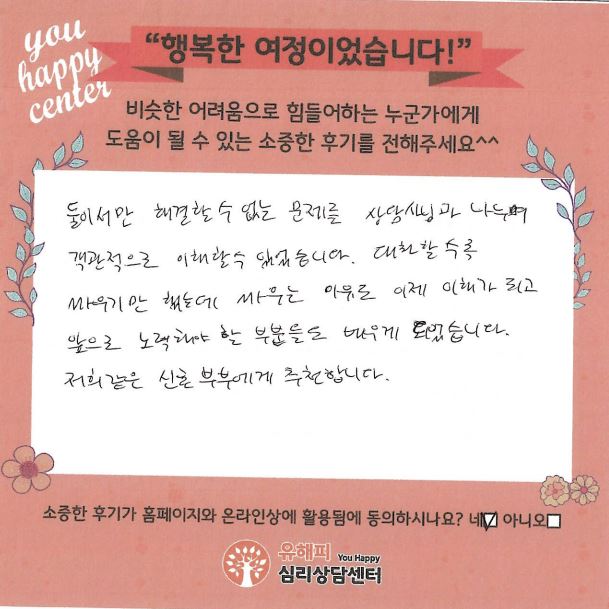 you
happy
center
“행복한 여정이었습니다!”
비슷한 어려움으로 힘들어하는 누군가에게
도움이 될 수 있는 소중한 후기를 전해주세요^^
둘이서만 해결할 수 없는 문제를 상담사님과 나누며
객관적으로 이해할 수 있었습니다. 대화할수록
싸우기만 했는데 싸우는 이유로 이제 이해가 되고
앞으로 노력해야 할 부분들도 배우게 되었습니다.
저희같은 신혼부부에게 추천합니다.
소중한 후기가 홈페이지와 온라인상에 활용됨에 동의하시나요? 네 아니오
유해피 You Happy
심리상담센터